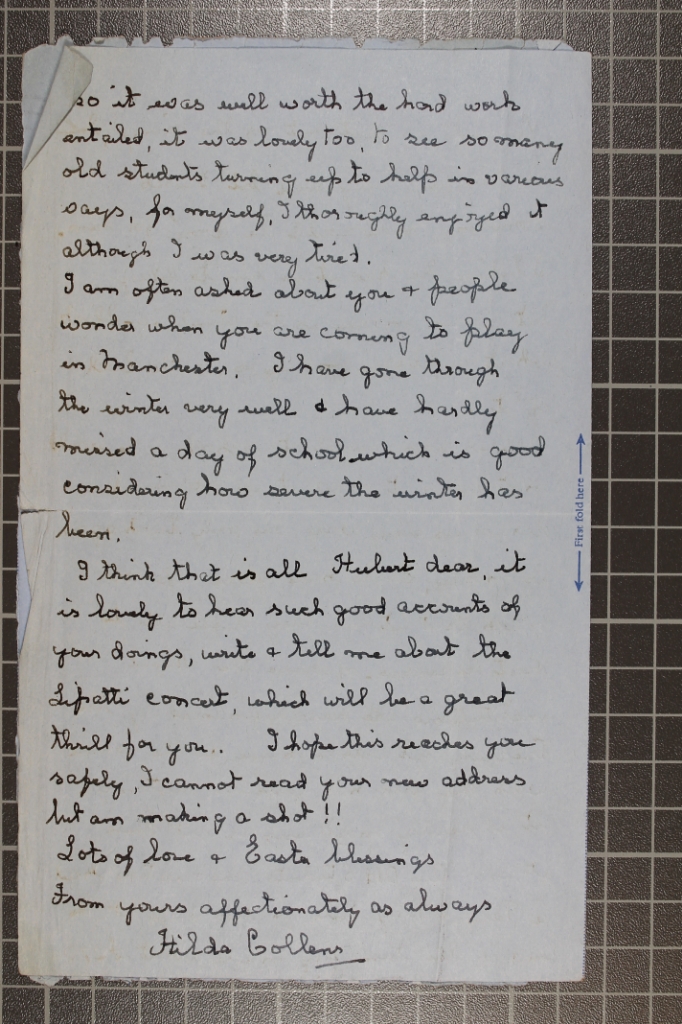 so it was well worth the hard work
entailed, it was lovely too, to see so many
old students turning up to help in various
ways, for myself, I thoroghly enjoyed it
although I was very tired.
I am often asked about you & people
wonder when you are coming to play
in Manchester. I have gone through
the winter very well & have hardly
missed a day of school which is good
considering how severe the winter has
been.
I think that is all Hubert dear, it
is lovely to hear such good accounts of
your doings, write & tell me about the
Lipatti concert, which will be a great
thrill for you.. I hope this reaches you
safely, I cannot read your new address
but am making a shot!!
Lots of love & Easter blessings
From yours affectionately as always
Hilda Collens
First fold here